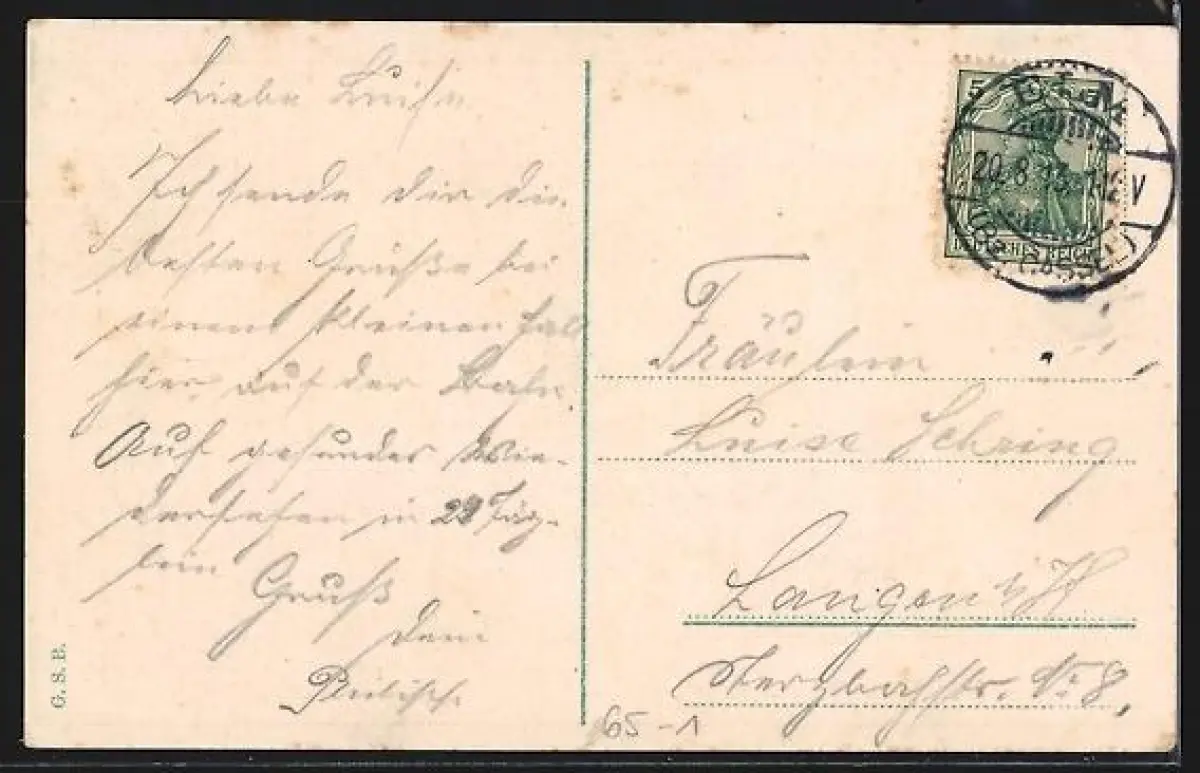 Liebe Luise
Ich sende dir die
besten Grüße bei
einem kleinen Halt
hier, auf der Bahn.
Auf gesundes Wie-
dersehen in 22 Täg-
lein
Gruß
Dein
G. S. B.
5
DEUTSCHES REICH
20.8.13
V
(Bz. CASSEL)
Fräulein
Luise Sehring
Langen i/H
bahnstr. No 8,
65-1